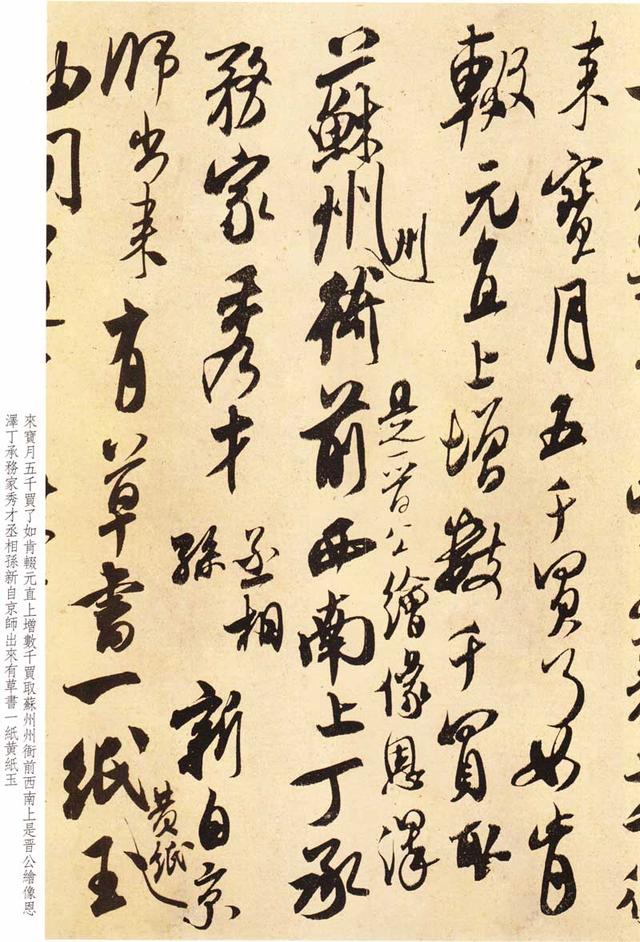 來寶月五千買了如肯
輟元直上增數千買取
是晋公繪像恩澤
蘇州衙前西南上丁承
州
務家秀才
丞相
孫
新自京
師出來有草書一紙玉
黃紙
來寶月五千買了如肯輟元直上增數千買取蘇州州衙前西南上是晋公繪像恩
澤丁承務家秀才丞相孫新自京師出來有草書一紙黃紙玉